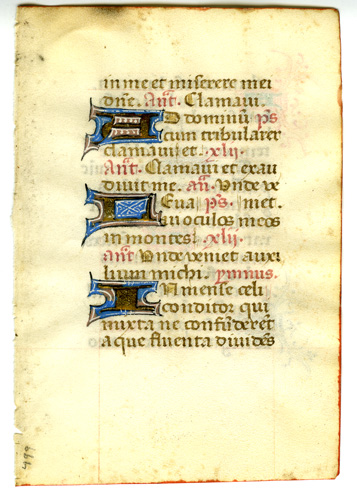 in me et miserere mei
dn̄e. An̄t. Clamaui.
AD dominū ps
cum tribularer
clamaui et. xlii
An̄t. Clamaui et exau
diuit me. an̄. Vnde ve
LEuaui ps. met.
in oculos meos
in montes. xlii.
an̄t Vnde veniet auxi
lium michi. ymnus.
INmense celi
conditor qui
mixta ne confūderēt
aque fluenta diuidēs
499